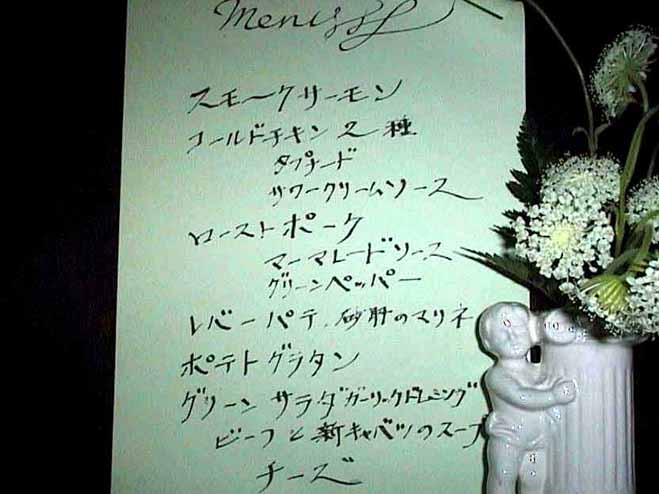 Menu
スモークサーモン
コールドチキン 2種
タプナード
サワークリームソース
ローストポーク
マーマレードソース
グリーンペッパー
レバーパテ、砂肝のマリネ
ポテトグラタン
グリーン サラダ ガーリックドレッシング
ビーフと新キャベツのスープ
チーズ